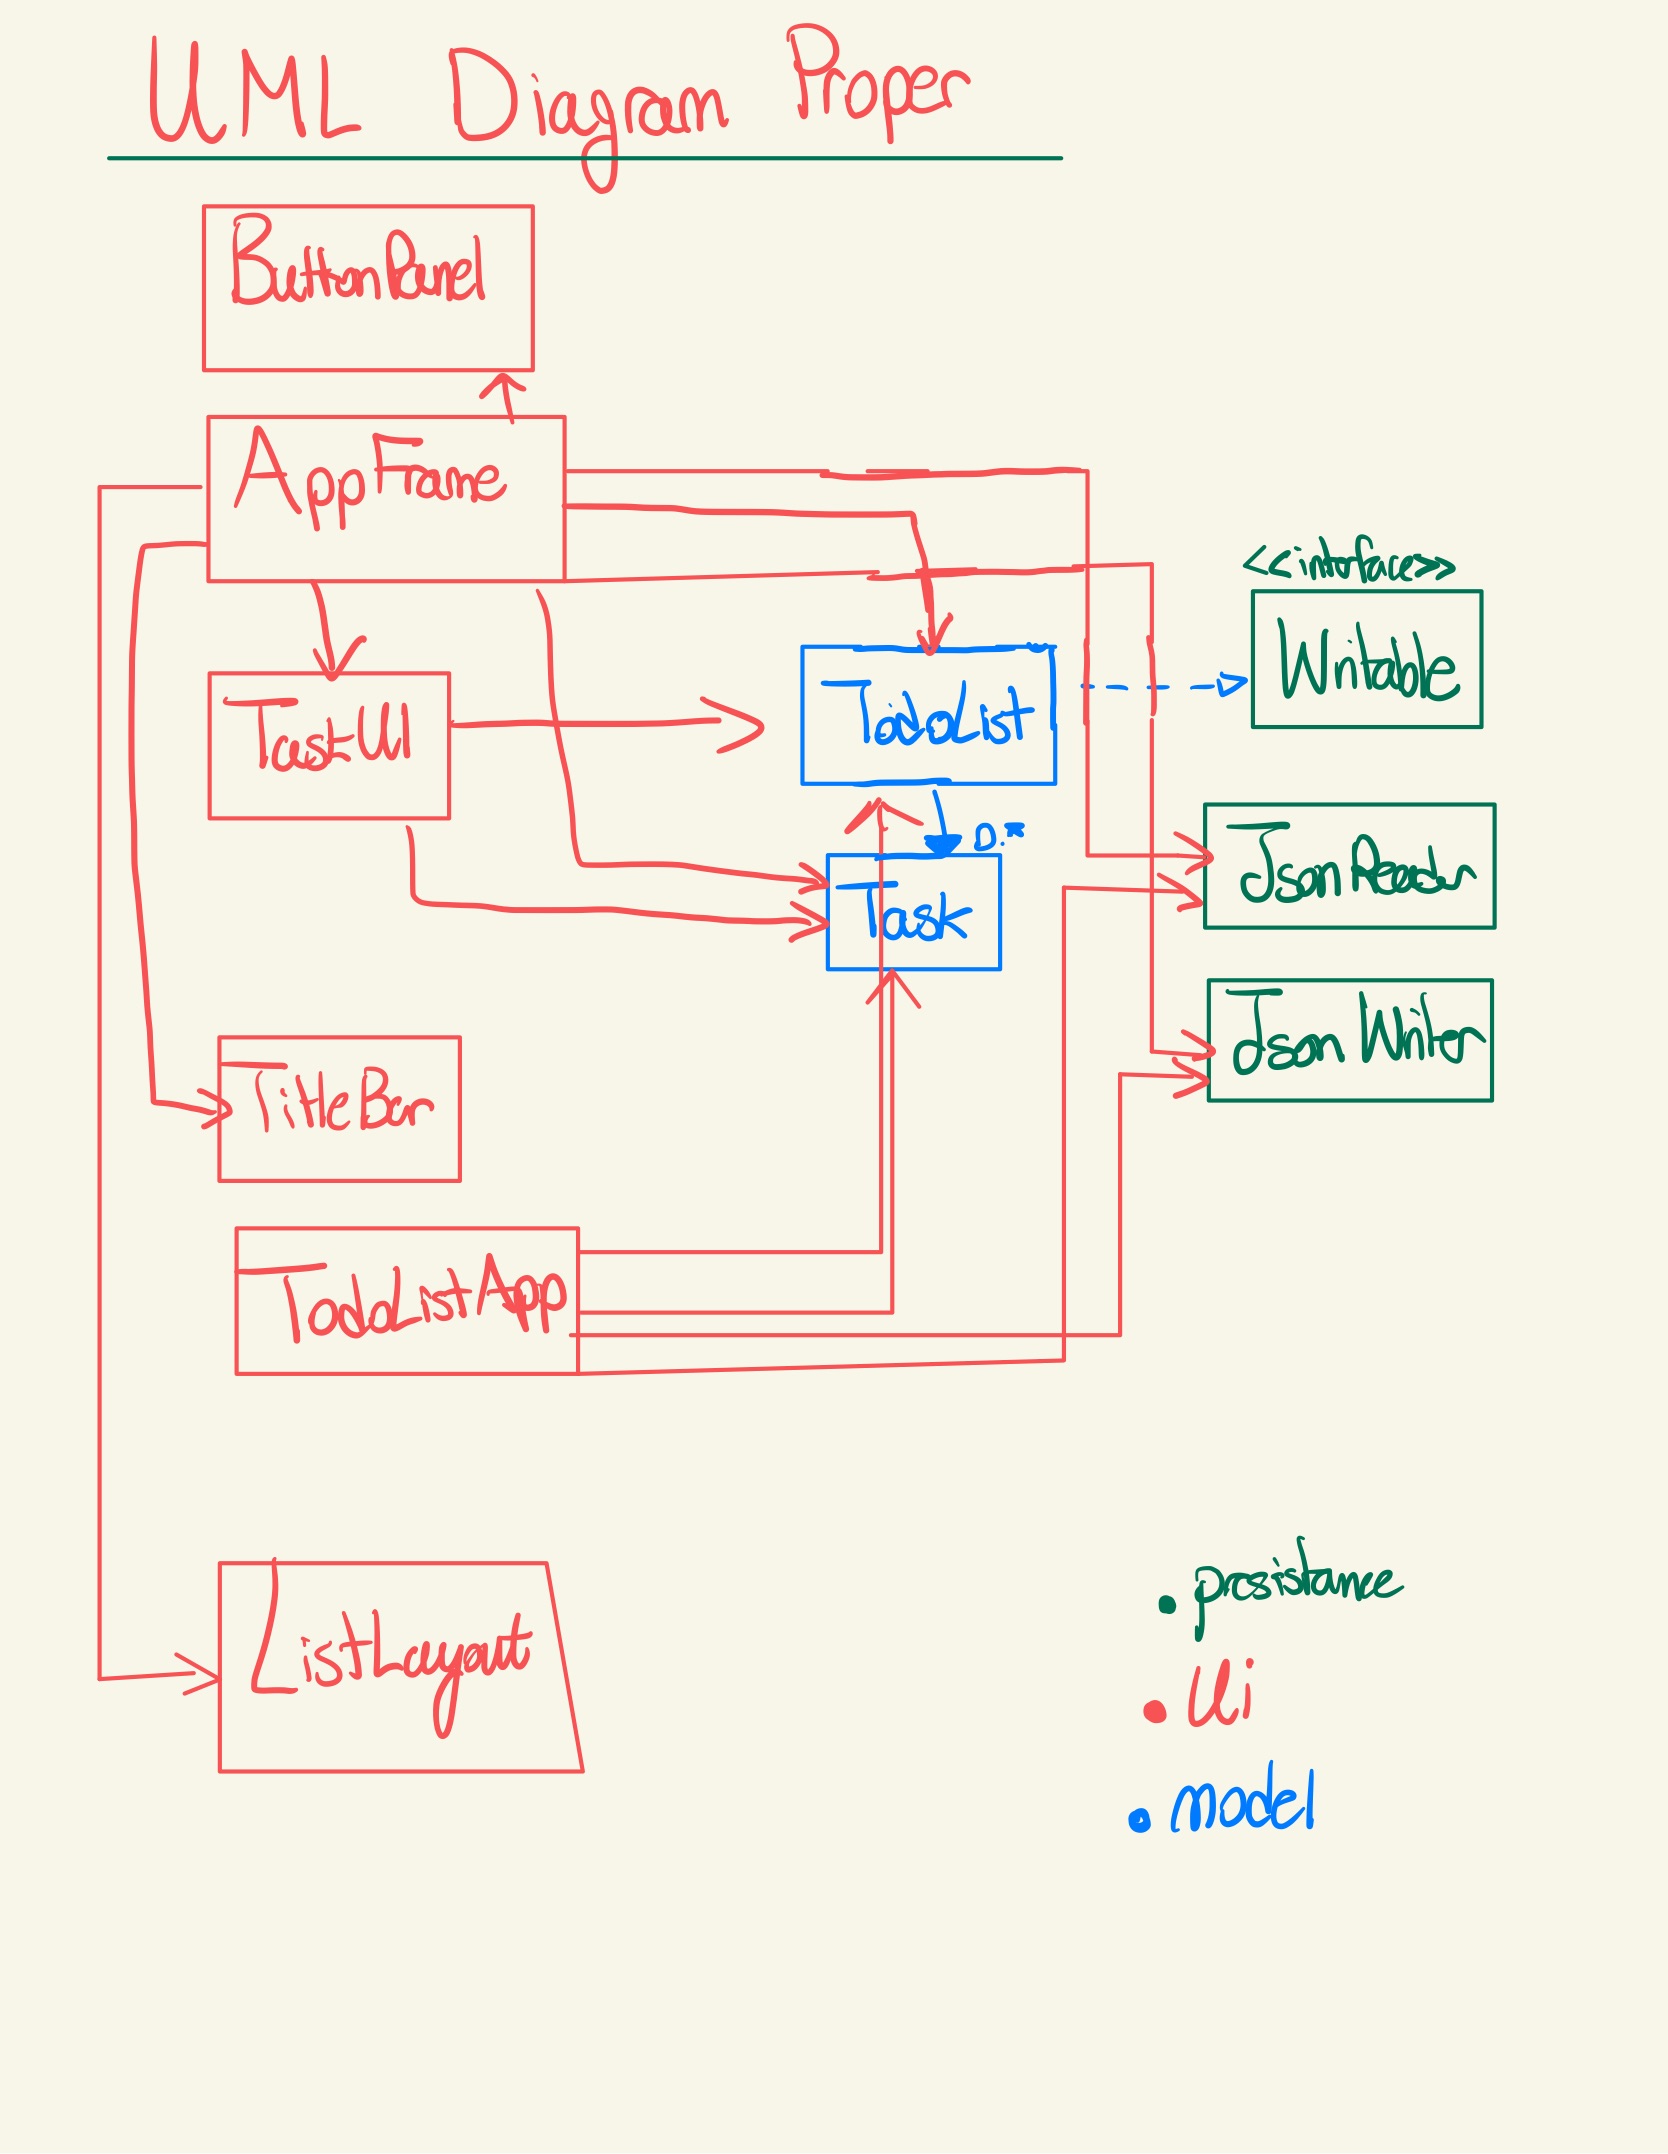 UML Diagram Proper
ButtonPanel
AppFrame
<<interface>>
Writable
TaskUI
TodoList
0.*
JsonReader
Task
Json Writer
TitleBar
TodoListApp
ListLayout
• persistance
• Ui
• model